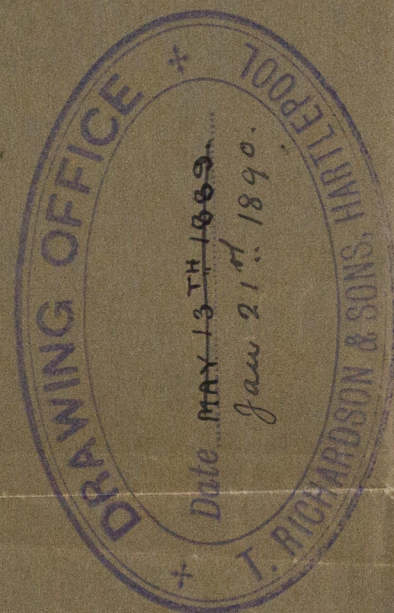 DRAWING OFFICE
Date MAY 13TH 1889.
Jan 21st 1890.
T. RICHARDSON & SONS, HARTLEPOOL